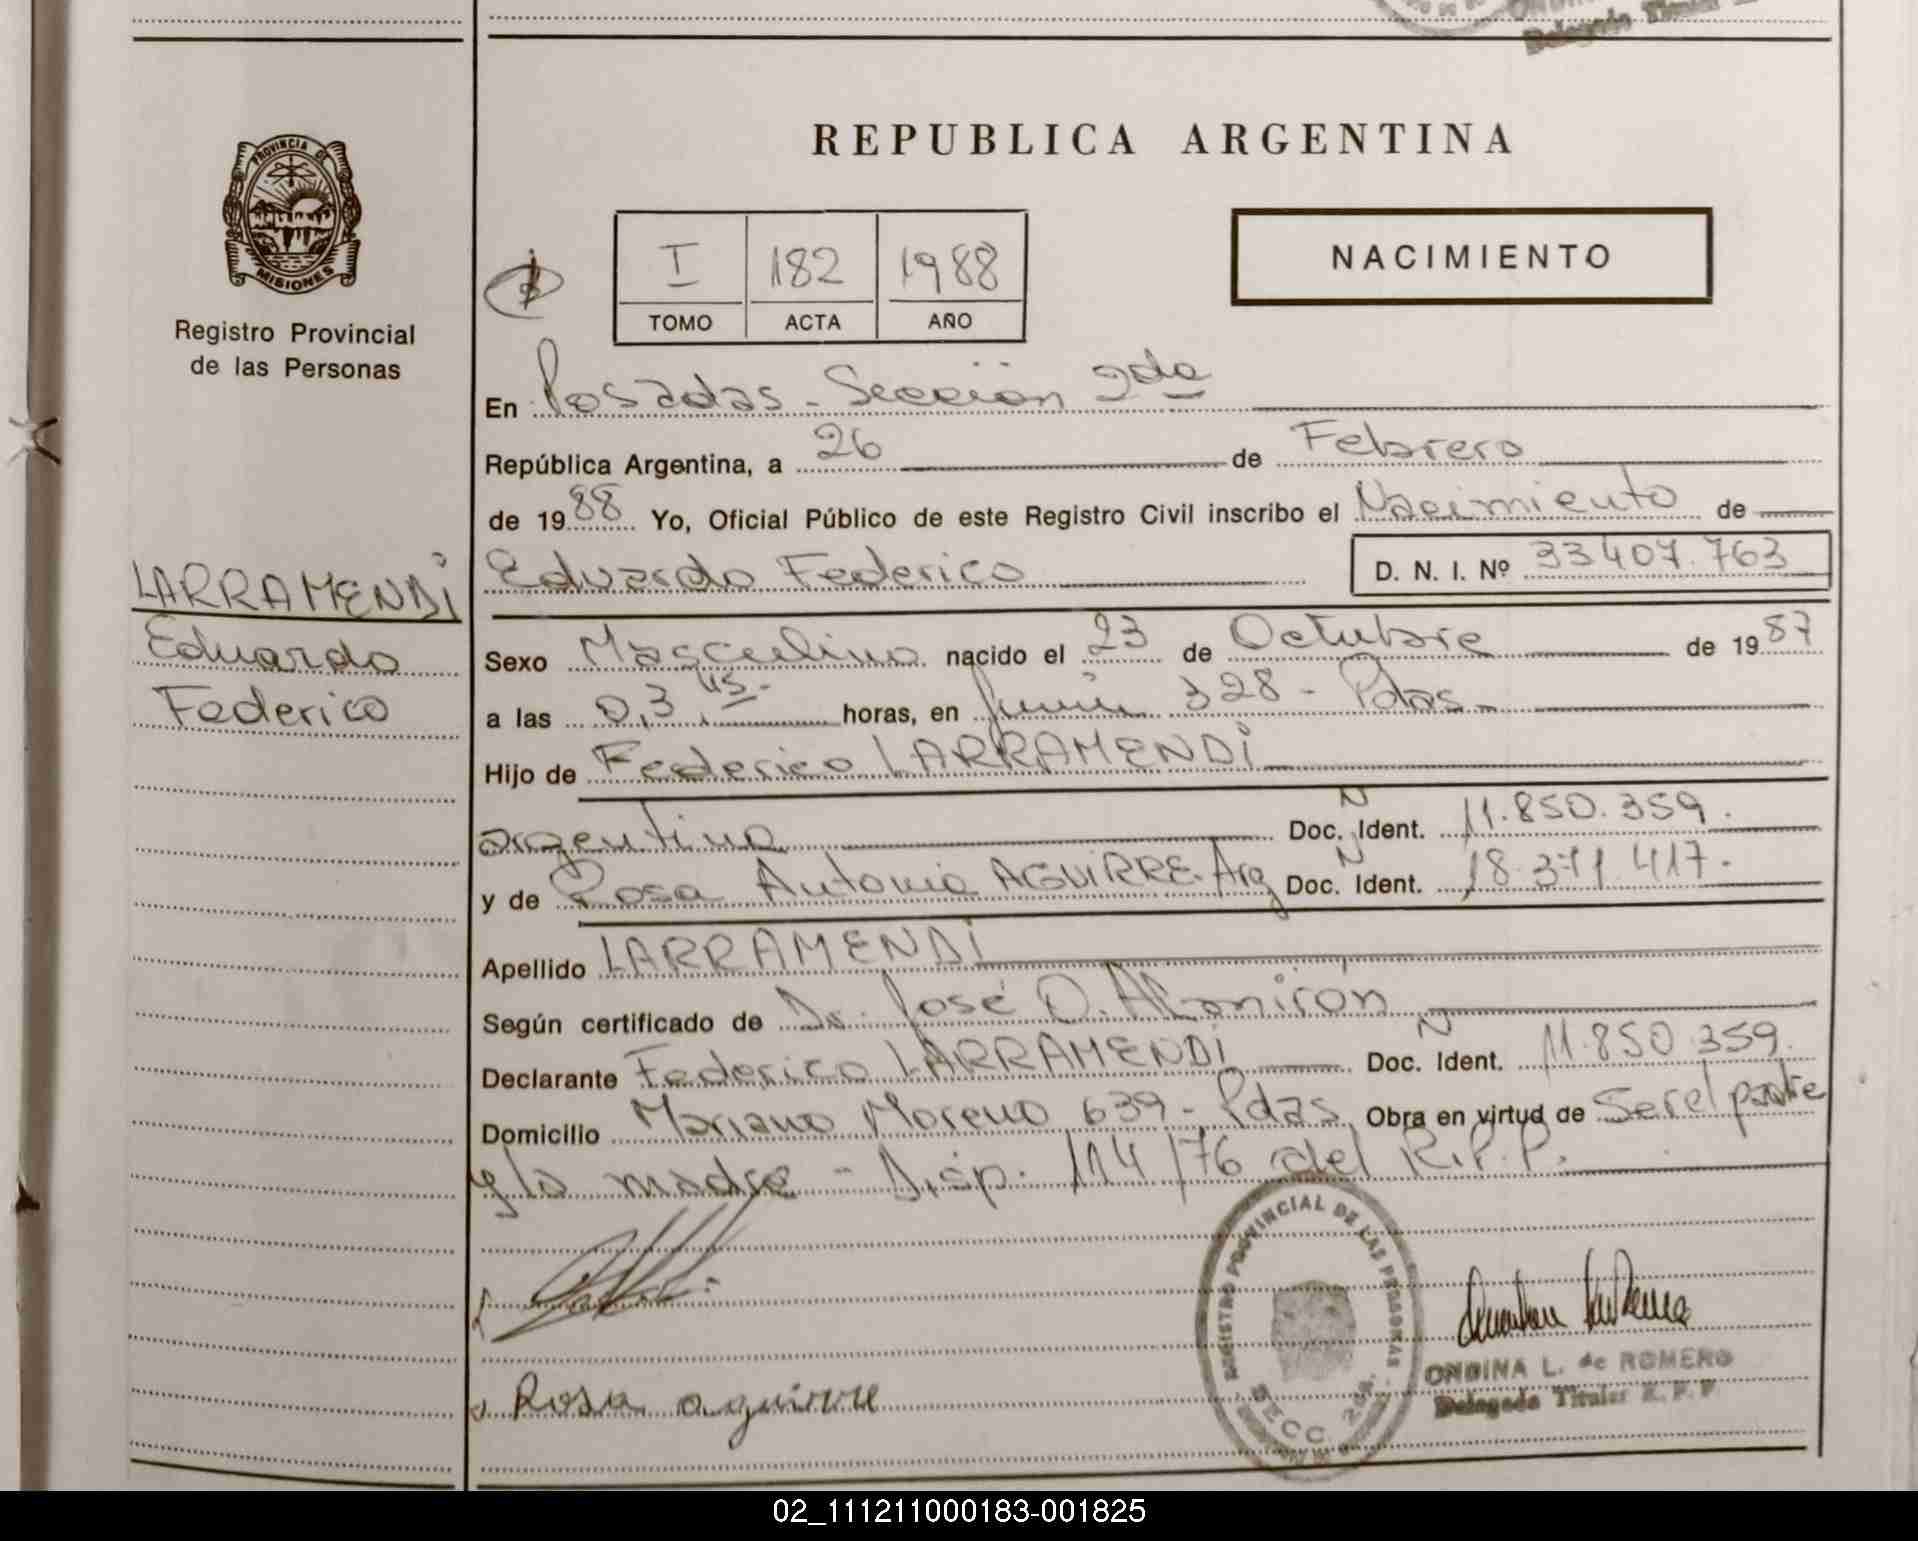 Delegada Titular
PROVINCIA DE
MISIONES
Registro Provincial
de las Personas
LARRAMENDI
Eduardo
Federico
REPUBLICA ARGENTINA
I 182 1988
TOMO ACTA AÑO
NACIMIENTO
En Posadas - Sección 2da
República Argentina, a 26 de Febrero
de 1988 Yo, Oficial Público de este Registro Civil inscribo el Nacimiento de
Eduardo Federico D. N. I. Nº 33407.763
Sexo Masculino nacido el 23 de Octubre de 1987
a las 0,3,45- horas, en Junín 328 - Pdas-
Hijo de Federico LARRAMENDI
argentino Doc. N Ident. 11.850.359.
y de Rosa Antonia AGUIRRE. Arg Doc. N Ident. 18.371.417.
Apellido LARRAMENDI
Según certificado de Dr. José D. Almirón
Declarante Federico LARRAMENDI Doc. N Ident. 11.850.359.
Domicilio Mariano Moreno 639 - Pdas Obra en virtud de Ser el padre
y la madre - Disp. 114/76 del R.P.P.
REGISTRO PROVINCIAL DE LAS PERSONAS
SECC. 2da.
Rosa aguirre
ONDINA L. de ROMERO
Delegada Titular R. P. P
02_111211000183-001825